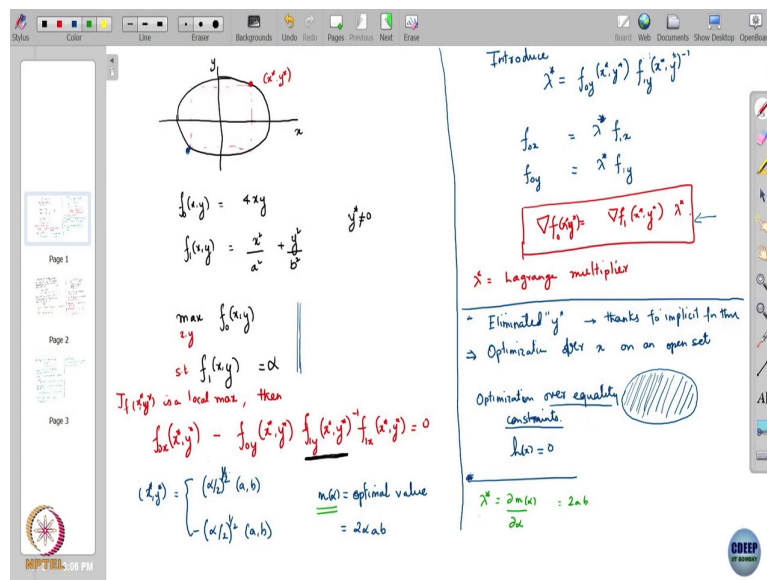 Stylus
Color
Line
Eraser
Backgrounds
Undo
Redo
Pages
Previous
Next
Erase
Board
Web
Documents
Show Desktop
OpenBoar
Page 1
Page 2
Page 3
y
(x*, y*)
x
f₀(x,y) = 4xy
f₁(x,y) = x²/a² + y²/b²
y* ≠ 0
max f₀(x,y)
x,y
s.t f₁(x,y) = α
If (x*,y*) is a local max, then
f₀ₓ(x*,y*) - f₀y(x*,y*) f₁y(x*,y*)⁻¹ f₁ₓ(x*,y*) = 0
(x*,y*) = { (α/2)^½ (a,b)
-(α/2)^½ (a,b)
m(α) = optimal value
= 2αab
Introduce
λ* = f₀y(x*,y*) f₁y(x*,y*)⁻¹
f₀ₓ = λ* f₁ₓ
f₀y = λ* f₁y
∇f₀(x*,y*) = ∇f₁(x*,y*) λ*
λ* = Lagrange multiplier
- Eliminated "y" → thanks to implicit fn thm
⇒ Optimization over x on an open set
Optimization over equality
constraints.
h(x) = 0
λ* = ∂m(α)/∂α = 2ab
NPTEL
3:06 PM
CDEEP
IIT BOMBAY